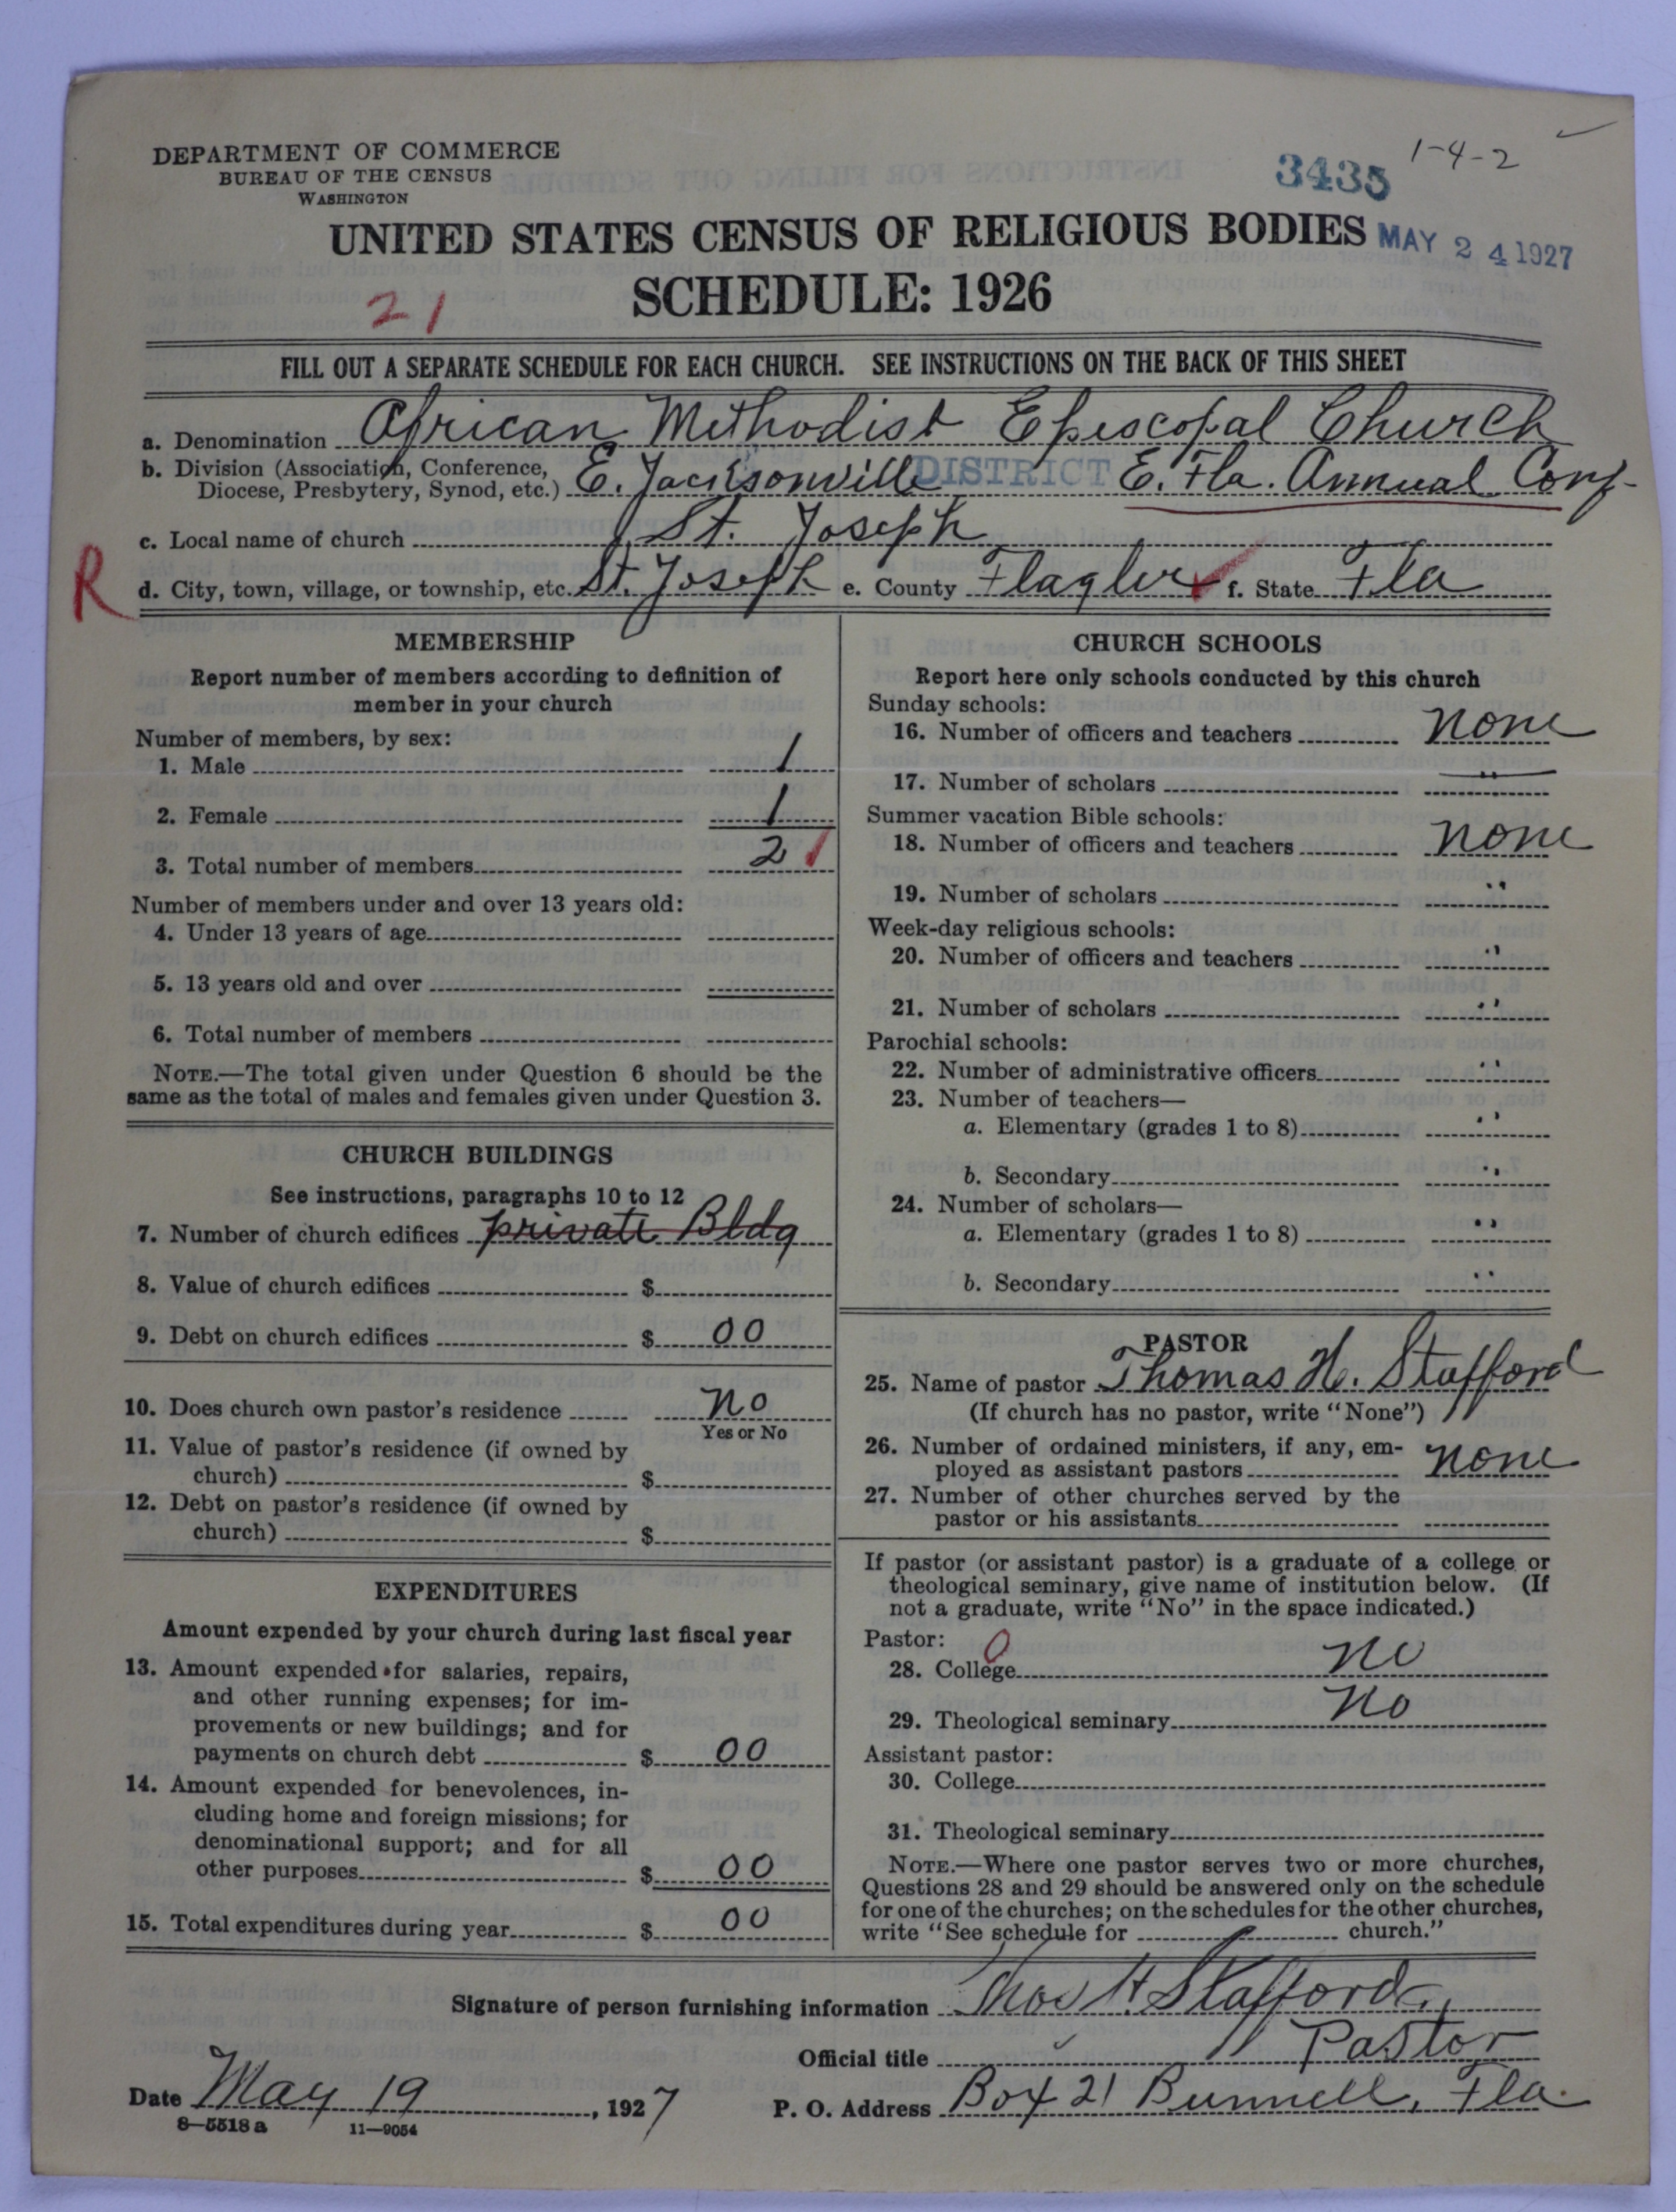 DEPARTMENT OF COMMERCE
BUREAU OF THE CENSUS
WASHINGTON
3435
1-4-2
UNITED STATES CENSUS OF RELIGIOUS BODIES
MAY 24 1927
SCHEDULE: 1926
21
FILL OUT A SEPARATE SCHEDULE FOR EACH CHURCH. SEE INSTRUCTIONS ON THE BACK OF THIS SHEET
a. Denomination African Methodist Episcopal Church
b. Division (Association, Conference, Diocese, Presbytery, Synod, etc.) E. Jacksonville DISTRICT E. Fla. Annual Conf-
c. Local name of church St. Joseph
R
d. City, town, village, or township, etc. St. Joseph e. County Flagler f. State Fla
MEMBERSHIP
Report number of members according to definition of
member in your church
Number of members, by sex:
1. Male 1
2. Female 1
3. Total number of members 2
Number of members under and over 13 years old:
4. Under 13 years of age
5. 13 years old and over
6. Total number of members
NOTE.—The total given under Question 6 should be the
same as the total of males and females given under Question 3.
CHURCH BUILDINGS
See instructions, paragraphs 10 to 12
7. Number of church edifices private Bldg
8. Value of church edifices $
9. Debt on church edifices $ 00
10. Does church own pastor's residence No
Yes or No
11. Value of pastor's residence (if owned by
church) $
12. Debt on pastor's residence (if owned by
church) $
EXPENDITURES
Amount expended by your church during last fiscal year
13. Amount expended for salaries, repairs,
and other running expenses; for im-
provements or new buildings; and for
payments on church debt $ 00
14. Amount expended for benevolences, in-
cluding home and foreign missions; for
denominational support; and for all
other purposes $ 00
15. Total expenditures during year $ 00
CHURCH SCHOOLS
Report here only schools conducted by this church
Sunday schools:
16. Number of officers and teachers none
17. Number of scholars "
Summer vacation Bible schools:
18. Number of officers and teachers none
19. Number of scholars "
Week-day religious schools:
20. Number of officers and teachers "
21. Number of scholars "
Parochial schools:
22. Number of administrative officers "
23. Number of teachers—
a. Elementary (grades 1 to 8) "
b. Secondary "
24. Number of scholars—
a. Elementary (grades 1 to 8) "
b. Secondary "
PASTOR
25. Name of pastor Thomas H. Stafford
(If church has no pastor, write "None")
26. Number of ordained ministers, if any, em-
ployed as assistant pastors none
27. Number of other churches served by the
pastor or his assistants
If pastor (or assistant pastor) is a graduate of a college or
theological seminary, give name of institution below. (If
not a graduate, write "No" in the space indicated.)
Pastor: 0
28. College No
29. Theological seminary No
Assistant pastor:
30. College
31. Theological seminary
NOTE.—Where one pastor serves two or more churches,
Questions 28 and 29 should be answered only on the schedule
for one of the churches; on the schedules for the other churches,
write "See schedule for church."
Signature of person furnishing information Thos H. Stafford
Official title Pastor
Date May 19, 1927 P. O. Address Box 21 Bunnell, Fla.
8—5518 a 11—9054